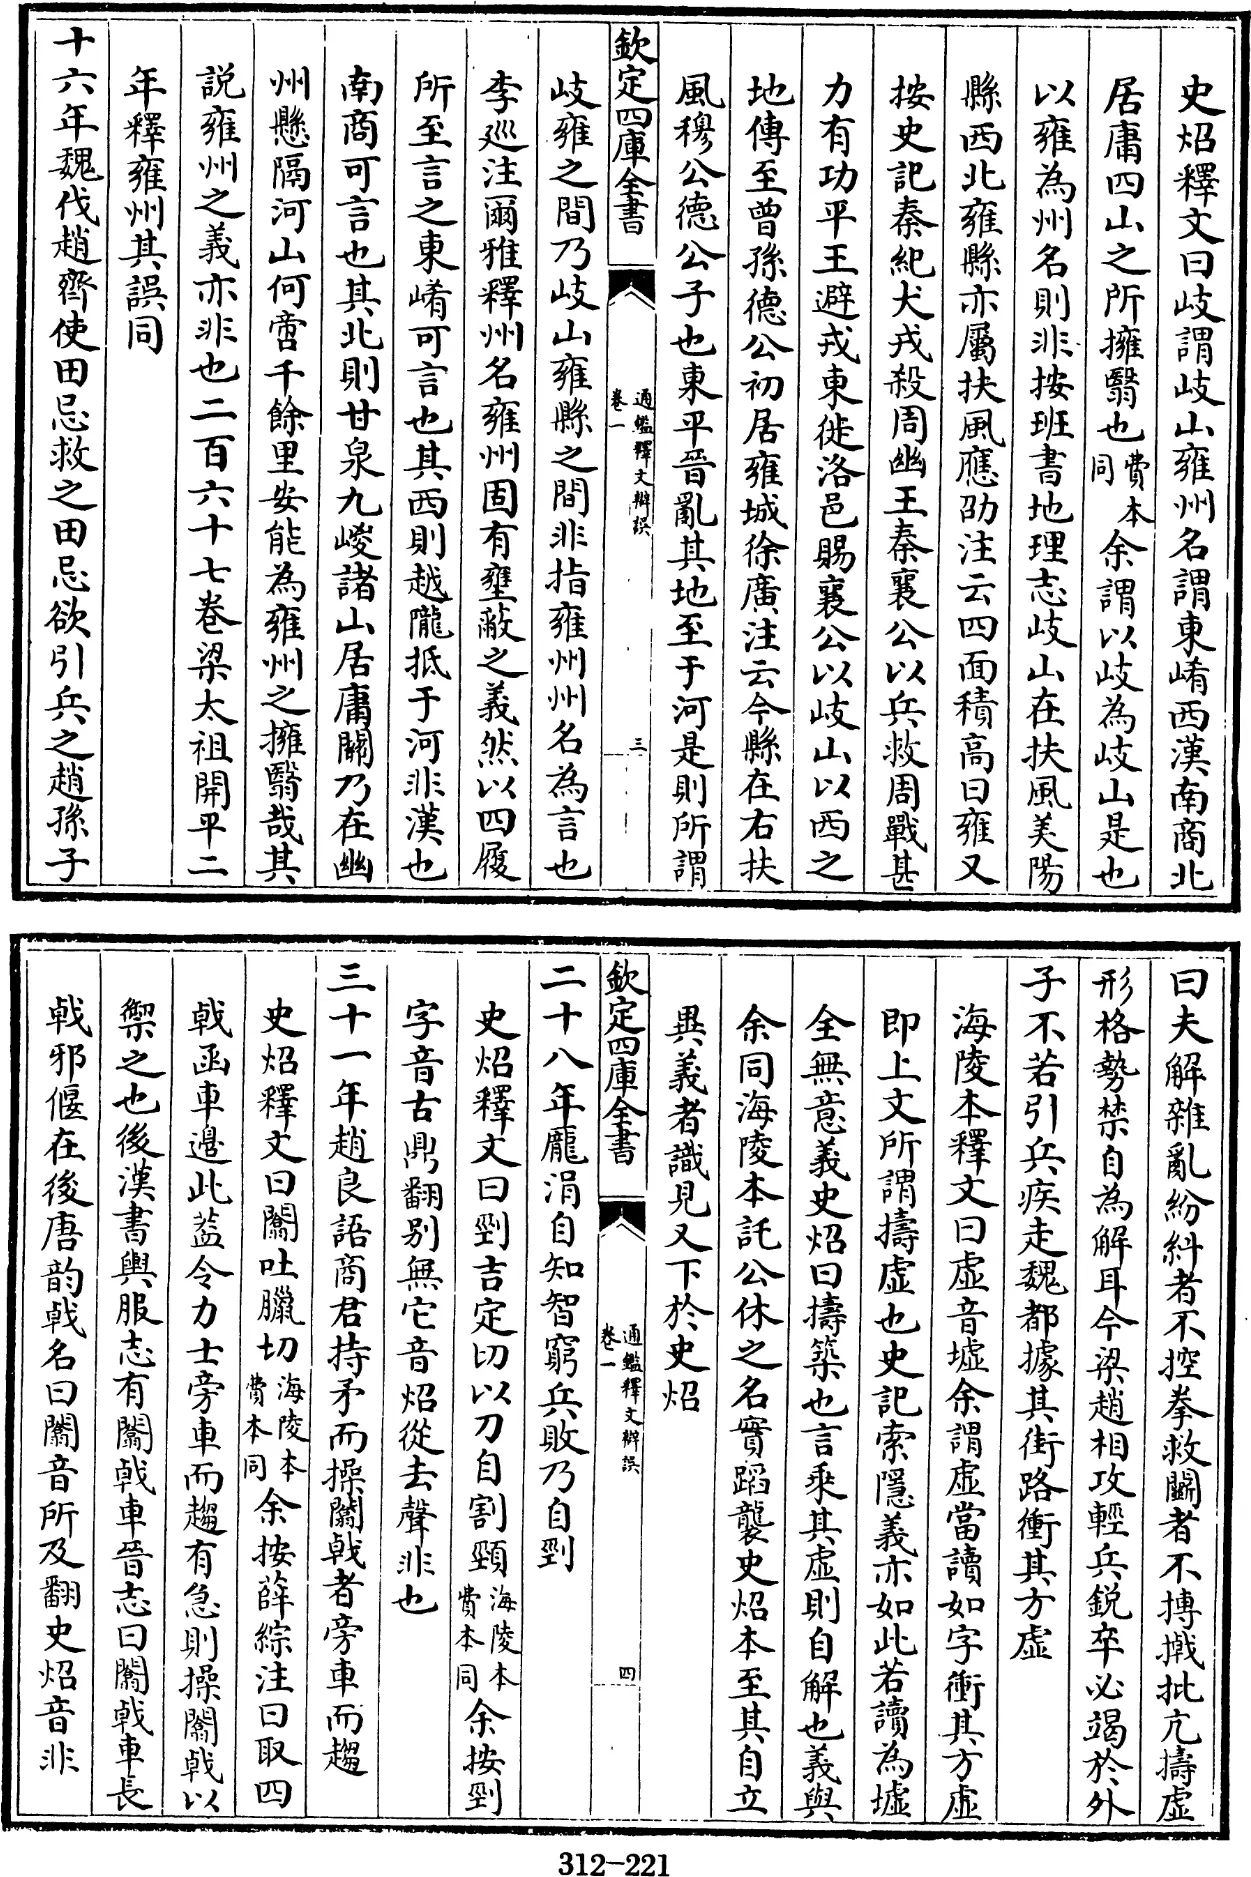 史炤釋文曰岐謂岐山雍州名謂東崤西漢南商北
居庸四山之所擁翳也費本同余謂以岐為岐山是也
以雍為州名則非按班書地理志岐山在扶風美陽
縣西北雍縣亦屬扶風應劭注云四面積高曰雍又
按史記秦紀犬戎殺周幽王秦襄公以兵救周戰甚
力有功平王避戎東徙洛邑賜襄公以岐山以西之
地傳至曾孫德公初居雍城徐廣注云今縣在右扶
風穆公德公子也東平晉亂其地至于河是則所謂
欽定四庫全書 通鑑釋文辯誤 卷一 三
岐雍之間乃岐山雍縣之間非指雍州州名為言也
李巡注爾雅釋州名雍州固有壅蔽之義然以四履
所至言之東崤可言也其西則越隴抵于河非漢也
南商可言也其北則甘泉九嵕諸山居庸關乃在幽
州懸隔河山何啻千餘里安能為雍州之擁翳哉其
説雍州之義亦非也二百六十七卷梁太祖開平二
年釋雍州其誤同
十六年魏伐趙齊使田忌救之田忌欲引兵之趙孫子
曰夫解雜亂紛糾者不控拳救鬭者不搏撠批亢擣虛
形格勢禁自為解耳今梁趙相攻輕兵鋭卒必竭於外
子不若引兵疾走魏都據其街路衝其方虛
海陵本釋文曰虛音墟余謂虛當讀如字衝其方虛
即上文所謂擣虛也史記索隱義亦如此若讀為墟
全無意義史炤曰擣築也言乘其虛則自解也義與
余同海陵本託公休之名實蹈襲史炤本至其自立
異義者識見又下於史炤
欽定四庫全書 通鑑釋文辯誤 卷一 四
二十八年龎涓自知智窮兵敗乃自剄
史炤釋文曰剄吉定切以刀自割頸海陵本費本同余按剄
字音古鼎翻别無它音炤從去聲非也
三十一年趙良語商君持矛而操闟戟者旁車而趨
史炤釋文曰闟吐臘切海陵本費本同余按薛綜注曰取四
戟函車邉此葢令力士旁車而趨有急則操闟戟以
禦之也後漢書輿服志有闟戟車晉志曰闟戟車長
戟邪偃在後唐韵戟名曰闟音所及翻史炤音非
312-221